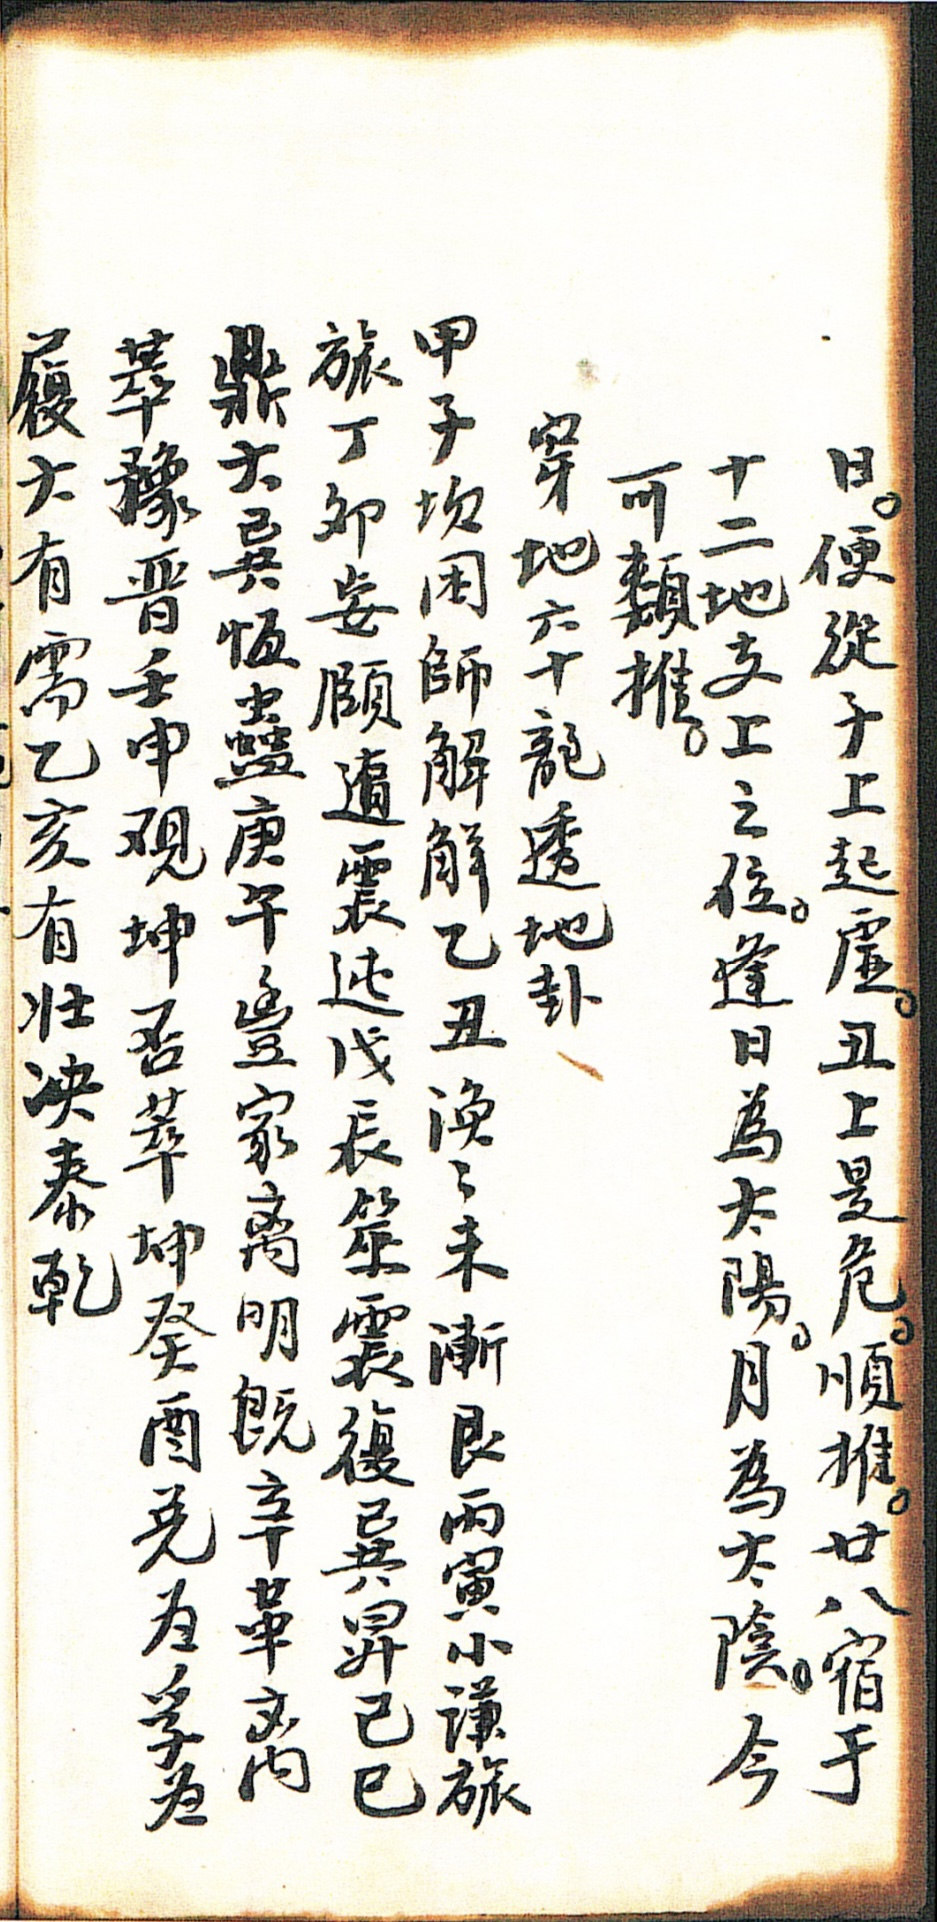 日。便從子上起虛。丑上是危。順推。廿八宿于
十二地支上之位。逢日為太陽。月為太陰。今
可類推。
穿地六十龍透地卦
甲子坎困師解解乙丑渙〻未漸艮丙寅小謙旅
旅丁卯妄頤遁震迍戊辰筮震復巽昇己巳
鼎大巽恆蠱庚午豊家离明既辛革文丙
萃豫晋壬申观坤否萃坤癸酉兑为孚为
履大有需乙亥有壮泱泰乾